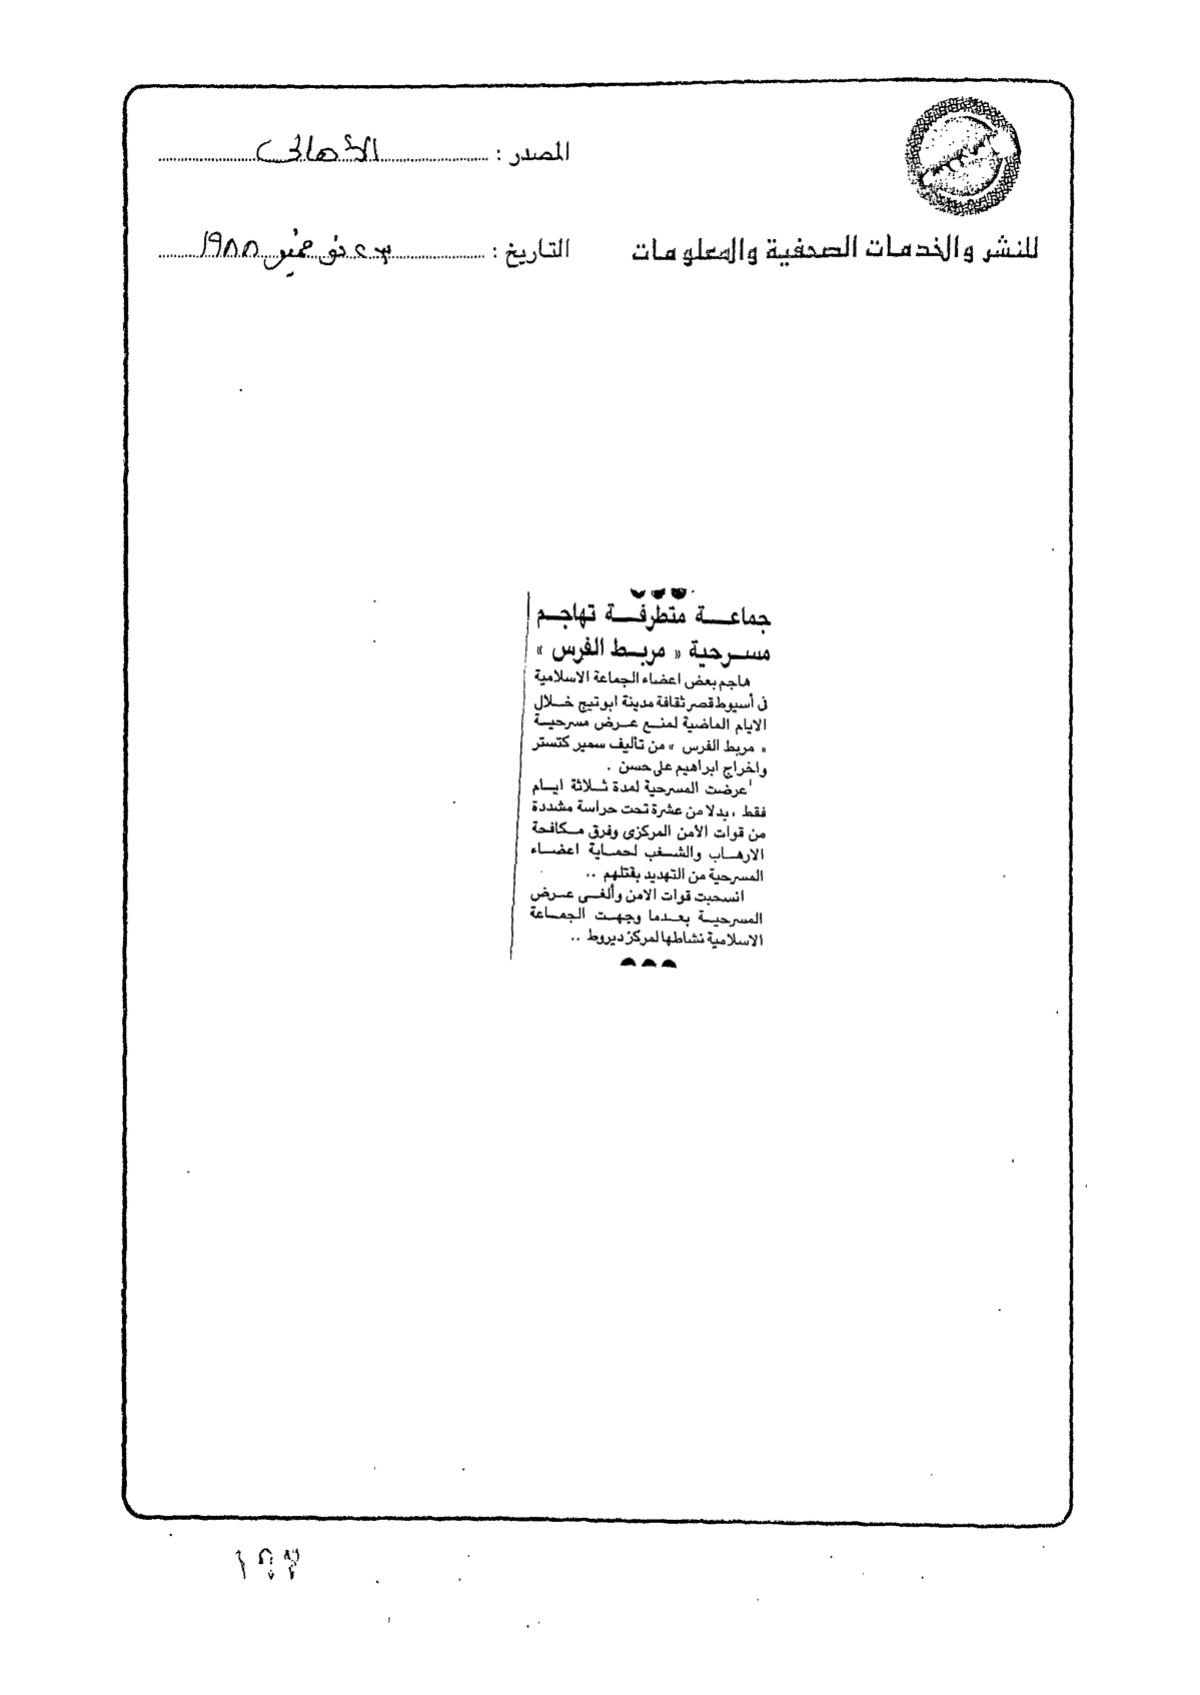 المصدر : الأهالى
للنشر والخدمات الصحفية والمعلومات
التاريخ : ٢٣ نوفمبر ١٩٨٨
جماعة متطرفة تهاجم
مسرحية « مربط الفرس »
هاجم بعض اعضاء الجماعة الاسلامية
فى أسيوط قصر ثقافة مدينة ابوتيج خلال
الايام الماضية لمنع عرض مسرحية
« مربط الفرس » من تأليف سمير كتستر
واخراج ابراهيم على حسن .
عرضت المسرحية لمدة ثلاثة ايام
فقط ، بدلا من عشرة تحت حراسة مشددة
من قوات الأمن المركزى وفرق مكافحة
الارهاب والشغب لحماية اعضاء
المسرحية من التهديد بقتلهم ..
انسحبت قوات الامن وألغى عرض
المسرحية بعدما وجهت الجماعة
الاسلامية نشاطها لمركز ديروط ..